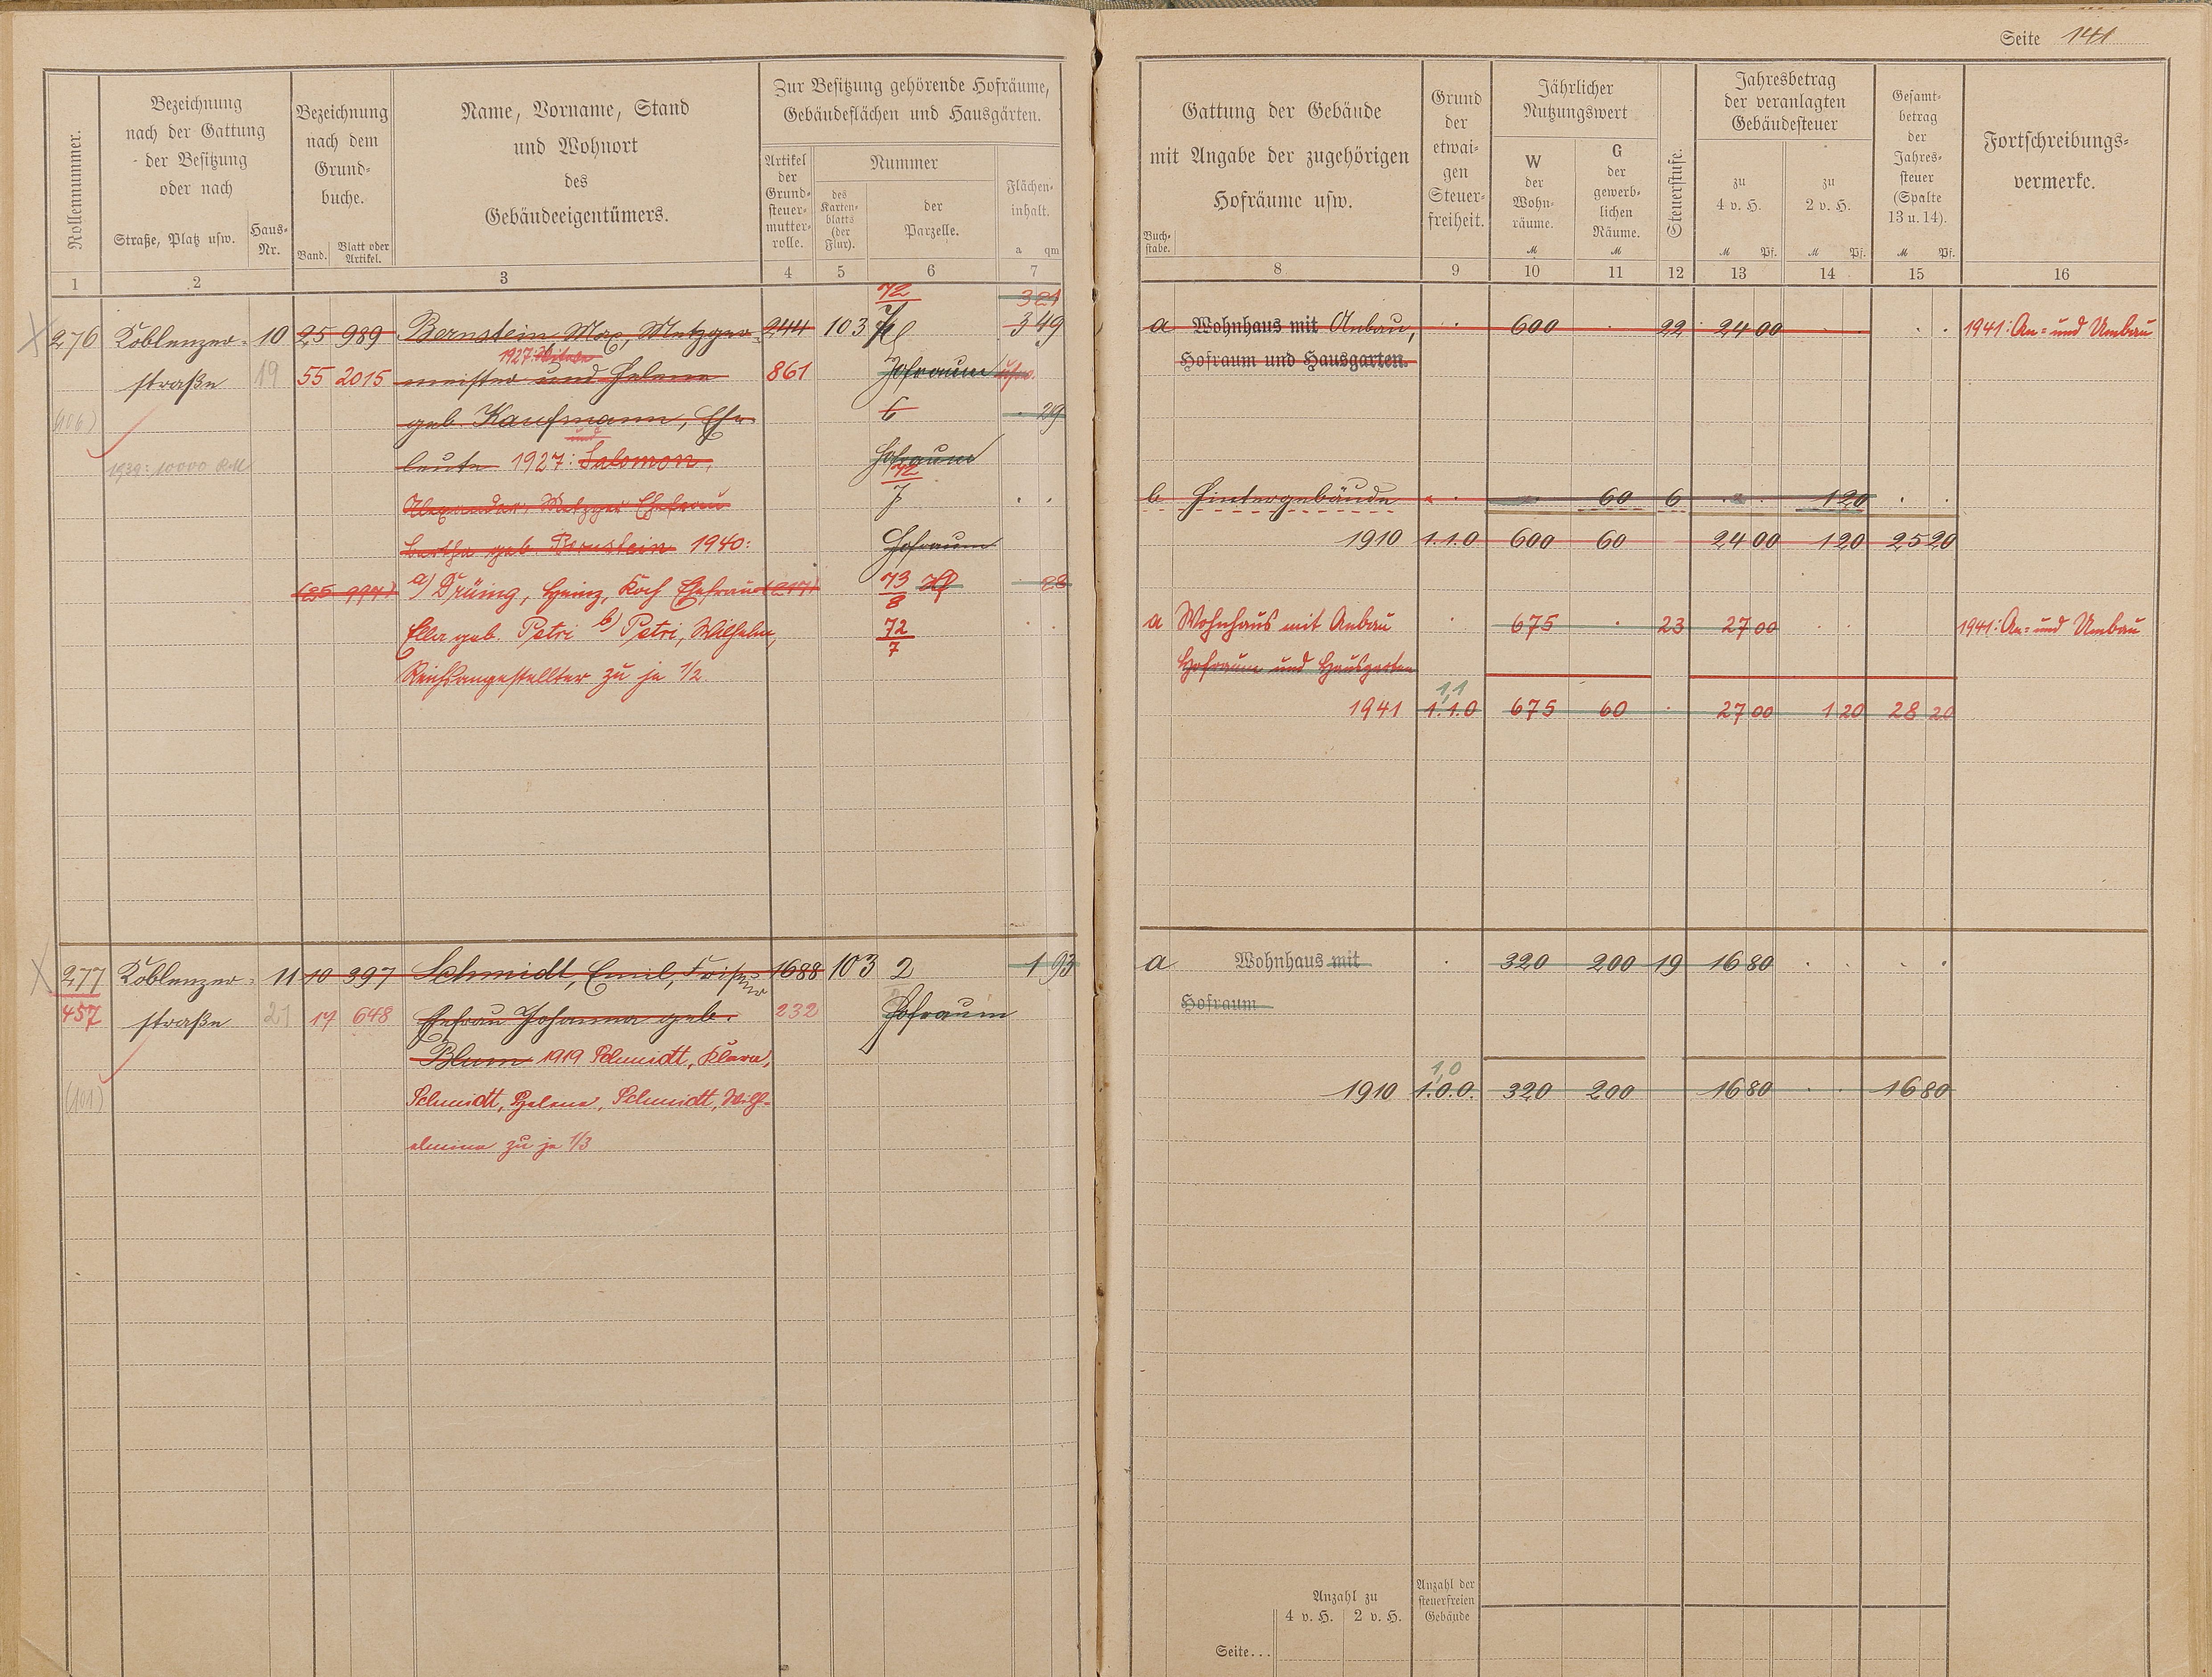 Seite 141
Rollennummer.
Bezeichnung
nach der Gattung
der Besitzung
oder nach
Straße, Platz usw.
Haus-
Nr.
Bezeichnung
nach dem
Grund-
buche.
Band.
Blatt oder
Artikel.
Name, Vorname, Stand
und Wohnort
des
Gebäudeeigentümers.
Zur Besitzung gehörende Hofräume,
Gebäudeflächen und Hausgärten.
Artikel
der
Grund-
steuer-
mutter-
rolle.
Nummer
des
Karten-
blatts
(der
Flur).
der
Parzelle.
Flächen-
inhalt.
a qm
1 2 3 4 5 6 7
Gattung der Gebäude
mit Angabe der zugehörigen
Hofräume usw.
Buch-
stabe.
Grund
der
etwai-
gen
Steuer-
freiheit.
Jährlicher
Nutzungswert
W
der
Wohn-
räume.
M
G
der
gewerb-
lichen
Räume.
M
Steuerstufe.
Jahresbetrag
der veranlagten
Gebäudesteuer
zu
4 v. H.
M Pf.
zu
2 v. H.
M Pf.
Gesamt-
betrag
der
Jahres-
steuer
(Spalte
13 u. 14).
M Pf.
Fortschreibungs-
vermerke.
8 9 10 11 12 13 14 15 16
72 3 21
276 Koblenzer- 10 25 989 Bernstein, Max, Metzger- 244 103 7 3 49
1927: Witwe
straße 19 55 2015 meister und Helene 861 Hofraum usw.
(106) geb. Kaufmann, Ehe 6 29
und
1939: 10000 RM leute 1927: Salomon, Hofraum
72
Alexander, Metzger Ehefrau 7
Bertha geb. Bernstein 1940: Hofraum
(25 994) a) Drüing, Heinz, Koch Ehefrau (217) 73 28
8
Ella geb. Petri b) Petri, Wilhelm, 72
7
Reichsangestellter zu je 1/2
a Wohnhaus mit Anbau, 600 22 24 00 1941: An- und Umbau
Hofraum und Hausgarten.
b Hintergebäude 60 6 1 20
1910 1.1.0 600 60 24 00 1 20 25 20
a Wohnhaus mit Anbau 675 23 27 00 1941: An- und Umbau
Hofraum und Hausgarten
1,1
1941 1.1.0 675 60 27 00 1 20 28 20
277 Koblenzer- 11 10 397 Schmidt, Emil, Friseur 1688 103 2 1 93
457 straße 21 17 648 Ehefrau Johanna geb. 232 Hofraum
Blum 1919 Schmidt, Klara,
(101) Schmidt, Helene, Schmidt, Wilh-
elmine zu je 1/3
a Wohnhaus mit 320 200 19 16 80
Hofraum
1,0
1910 1.0.0. 320 200 16 80 16 80
Anzahl zu
4 v. H. 2 v. H.
Anzahl der
steuerfreien
Gebäude
Seite...